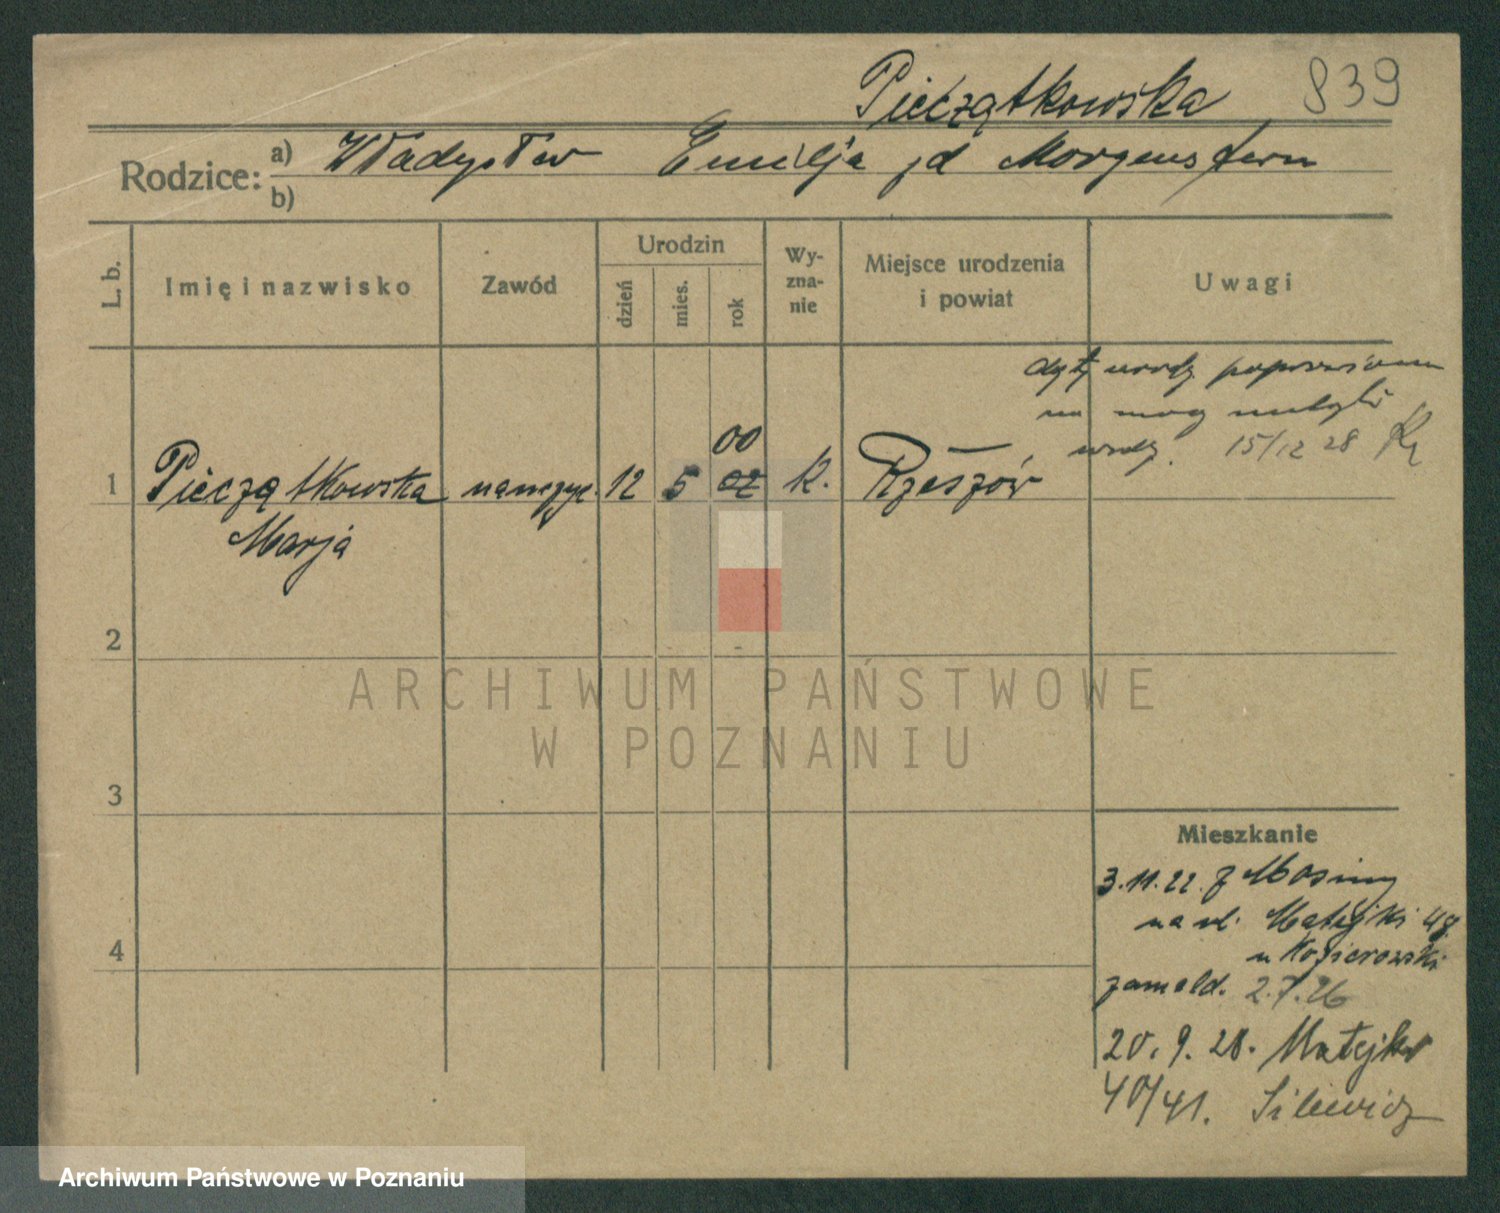 Pieczątkowska 839
Rodzice: a) Władysław Emilja jd Morgenstern
b)
L. b. Imię i nazwisko Zawód Urodzin dzień mies. rok Wyznanie Miejsce urodzenia i powiat Uwagi
datę urodz. poprawiono
na mocy metryki
urodz. 15/12 28
00
1 Pieczątkowska nauczyc. 12 5 02 k. Rzeszów
Marja
2
ARCHIWUM PAŃSTWOWE
W POZNANIU
3
Mieszkanie
3.11.22. z Mosiny
na ul. Matejki 48
u Kozierowski
4
zameld. 2.7.26
20.9.28. Matejki
40/41. Silewicz
Archiwum Państwowe w Poznaniu